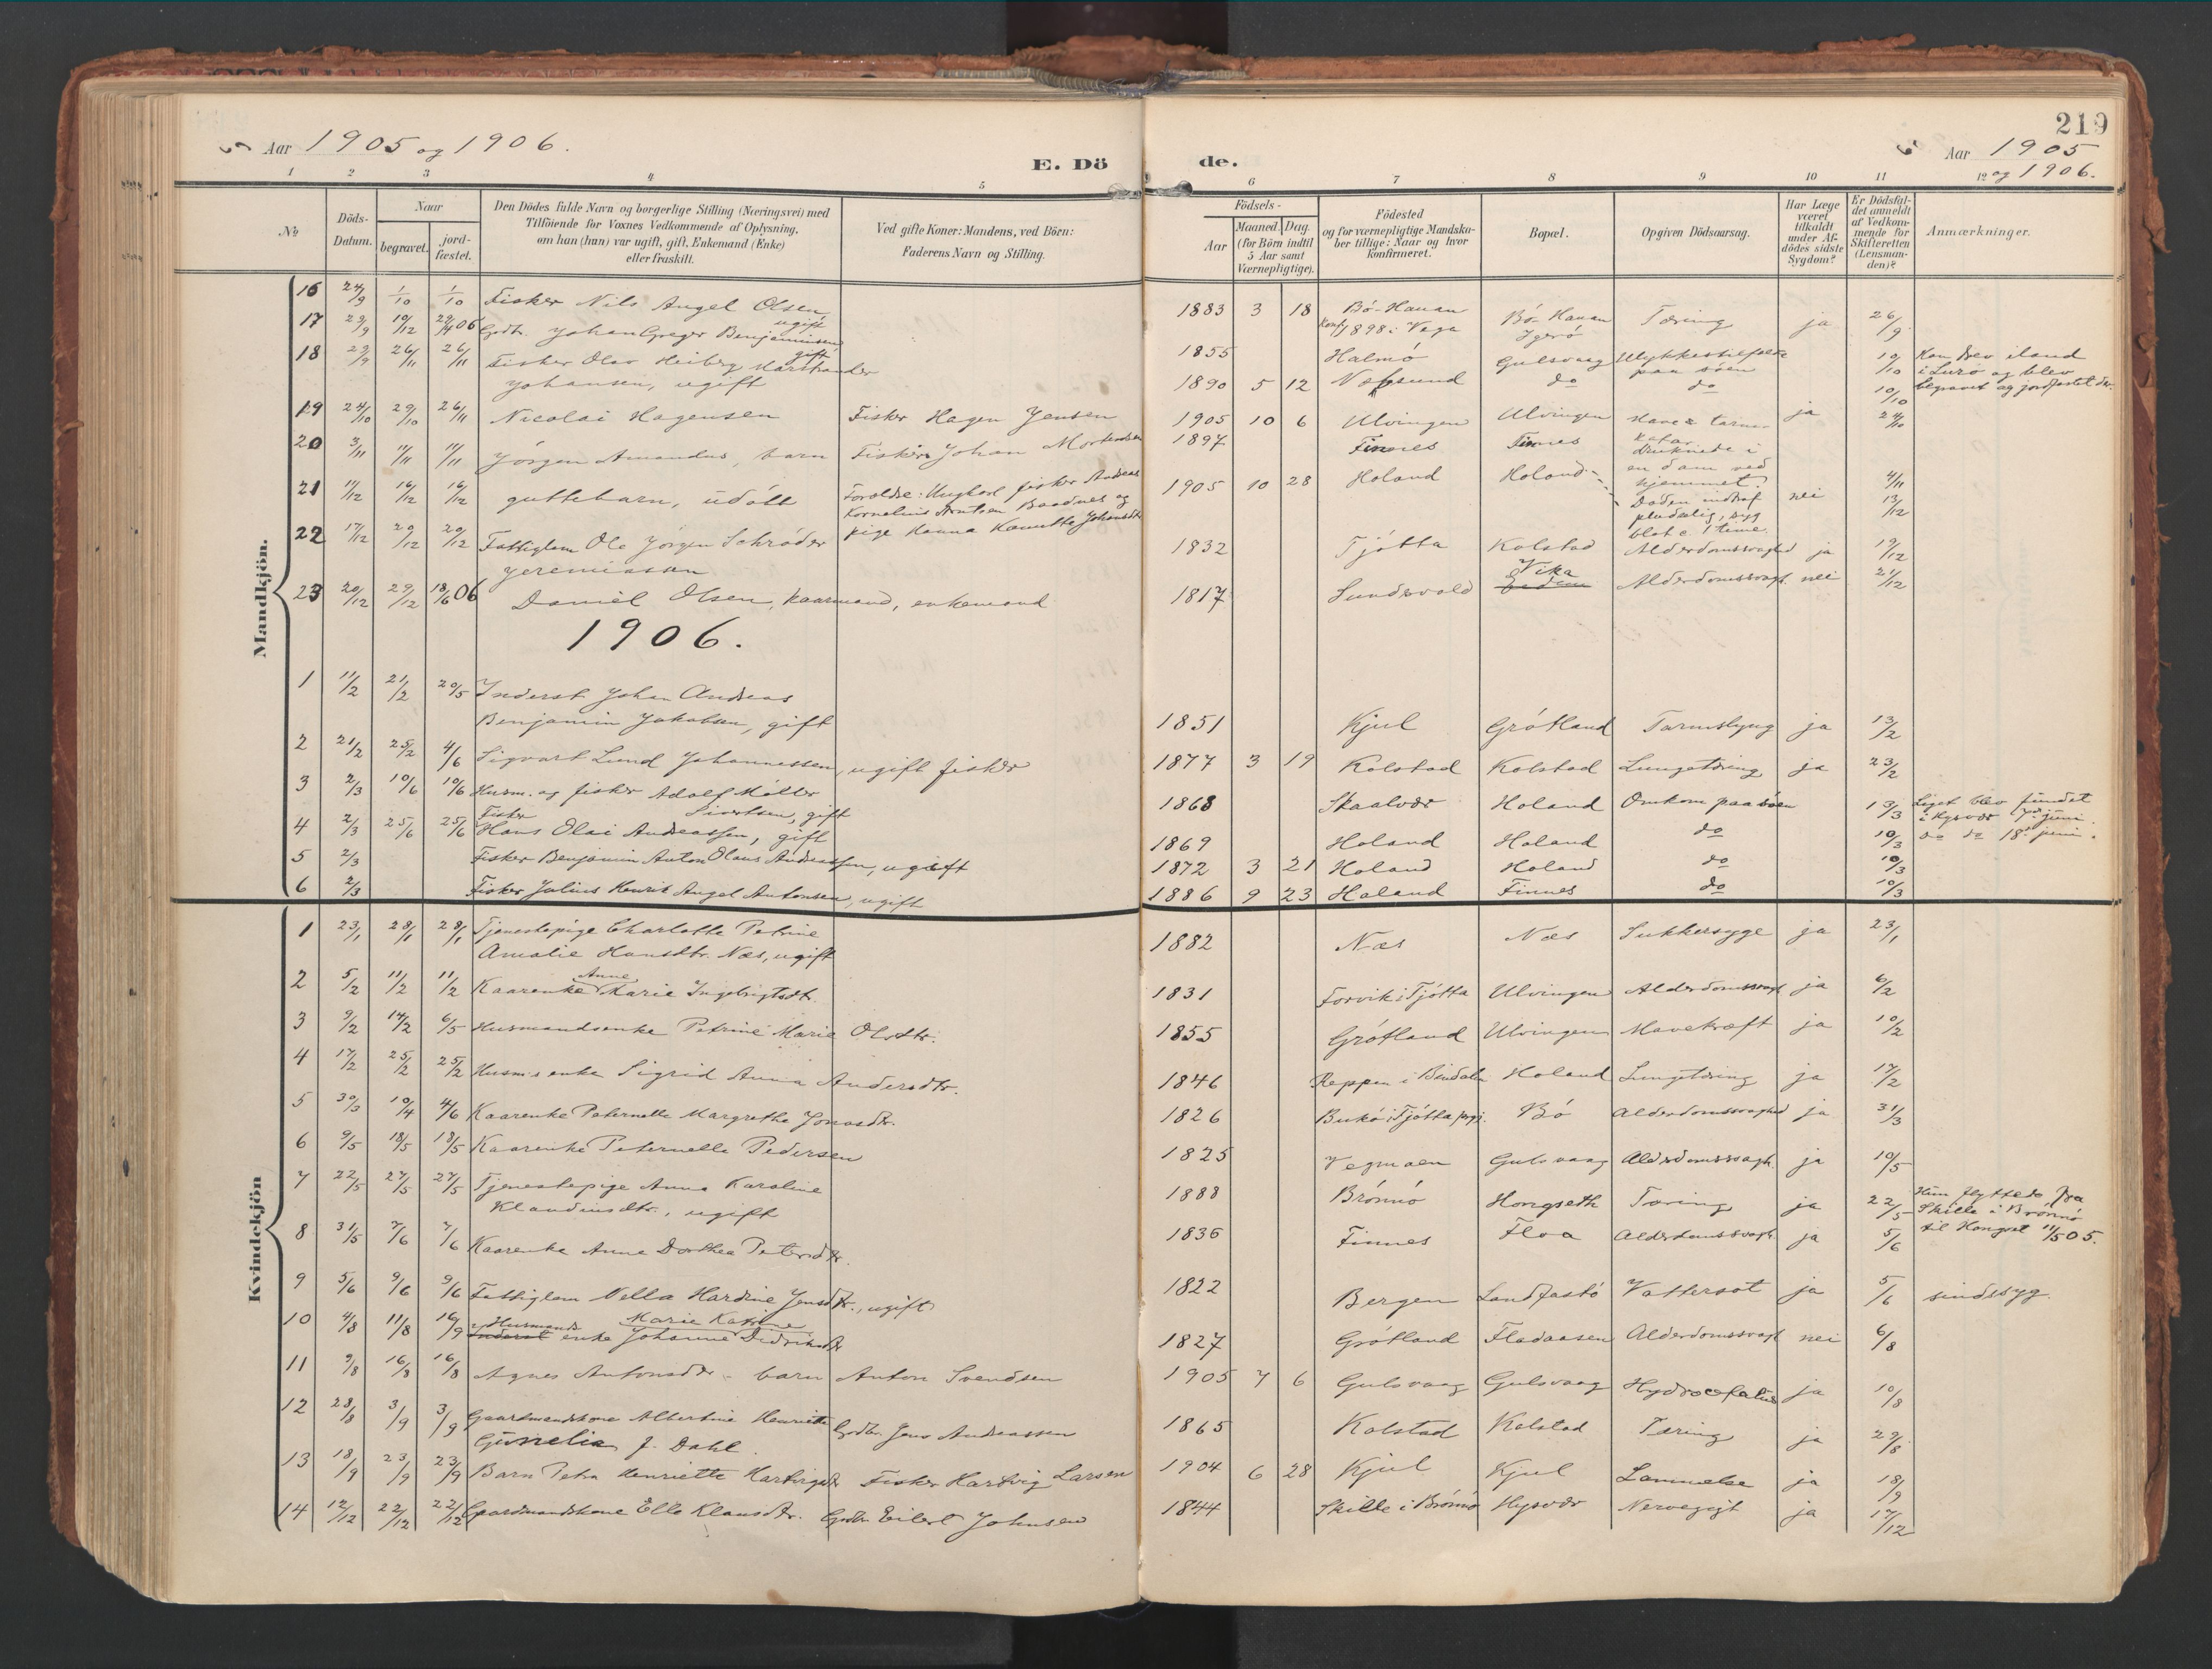 219
Aar 1905 og 1906.
E. Dö
de.
Aar 1905
og 1906.
1 2 3 4 5 6 7 8 9 10 11 12
№
Döds-Datum.
Naar
begravet.
jord-fæstet.
Den Dödes fulde Navn og borgerlige Stilling (Næringsvei) med
Tilföiende for Voxnes Vedkommende af Oplysning,
om han (hun) var ugift, gift, Enkemand (Enke)
eller fraskilt.
Ved gifte Koner: Mandens, ved Börn:
Faderens Navn og Stilling.
Födsels-
Aar
Maaned. Dag.
(for Börn indtil
5 Aar samt
Værnepligtige).
Födested
og for værnepligtige Mandska-
ber tillige: Naar og hvor
konfirmeret.
Bopæl.
Opgiven Dödsaarsag.
Har Læge
været
tilkaldt
under Af-
dödes sidste
Sygdom?
Er Dödsfal-
det anmeldt
af Vedkom-
mende for
Skifteretten
(Lensman-
den)?
Anmærkninger.
Mandkjön.
16 24/9 1/10 1/10 Fisker Nils Angel Olsen, ugift 1883 3 18 Bö-Havan Konf. 1898 i Vega Bö-Havan Igerö Tæring ja 26/9
17 29/9 10/12 29/4 06 Grdbr. Johan Greger Benjaminsen, gift 1855 Halmö Gulsvaag Ulykkestilfælde paa söen 10/10 Han drev iland
18 29/9 26/11 26/11 Fisker Olav Heiberg Marthander 1890 5 12 Næsund do do 10/10 i Lurö og blev
Johansen, ugift begravet og jordfæstet der.
19 24/10 29/10 26/11 Nicolai Hagensen Fisker Hagen Jensen 1905 10 6 Ulvingen Ulvingen Mave & tarm-katar ja 24/10
20 3/11 11/11 11/11 Jörgen Amandus, barn Fisker Johan Mortensen 1897 Finnes Finnes Druknede i
en dam ved
hjemmet. 4/11
21 11/12 16/12 16/12 guttebarn, udöbt Foreldre: Ungkarl fisker Andreas 1905 10 28 Holand Holand Döden indtraf nei 13/12
Kornelius Knutsen Baadnes og pludselig, syg
pige Hanna Johansdtr blot c. 1 time.
22 17/12 20/12 20/12 Fattiglem Ole Jörgen Schröder 1832 Tjötta Kolstad Alderdomssvaghed ja 19/12
Jeremiassen
23 20/12 29/12 18/6 06 Daniel Olsen, kaarmand, enkemand 1817 Sundsvold Vika Alderdomssvagh. nei 21/12
1906.
1 11/2 21/2 20/5 Inderst Johan Andreas
Benjamin Jakobsen, gift 1851 Kjul Grötland Tarmslyng ja 13/2
2 21/2 25/2 4/6 Sigvart Lund Johannessen, ugift fisker 1877 3 19 Kolstad Kolstad Lungetæring ja 23/2
3 2/3 10/6 10/6 Husm. og fisker Adolf Möller
Sivertsen, gift 1868 Skaalvær Holand Omkom paa söen 13/3 Liget blev fundet
i Hysvær 7de juni.
4 2/3 25/6 25/6 Fisker Hans Olai Andreassen, gift 1869 Holand Holand do 10/3 do do 18de juni.
5 2/3 Fisker Benjamin Anton Olaus Andreassen, ugift 1872 3 21 Holand Holand do 10/3
6 2/3 Fisker Julius Henrik Angel Antonsen, ugift 1886 9 23 Holand Finnes do 10/3
Kvindekjön
1 23/1 28/1 28/1 Tjenestepige Charlotte Petrine
Amalie Hansdtr. Næs, ugift 1882 Næs Næs Sukkersyge ja 23/1
2 5/2 11/2 11/2 Kaarenke Anne Marie Ingebrigtsdtr. 1831 Forvik i Tjötta Ulvingen Alderdomssvagh. ja 6/2
3 9/2 14/2 6/5 Husmandsenke Petrine Marie Olsdtr. 1855 Grötland Ulvingen Mavekræft ja 10/2
4 17/2 25/2 25/2 Husm.s enke Sigrid Anna Andersdtr. 1846 Reppen i Bindalen Holand Lungetæring ja 17/2
5 30/3 10/4 4/6 Kaarenke Peternelle Margrethe Jonasdtr. 1826 Bukö i Tjötta prgj. Bö Alderdomssvaghed ja 31/3
6 9/5 18/5 18/5 Kaarenke Peternelle Pedersen 1825 Vegmoen Gulsvaag Alderdomssvagh. ja 10/5
7 22/5 27/5 27/5 Tjenestepige Anna Karoline
Klaudiusdtr., ugift 1888 Brönnö Hongseth Tæring ja 22/5 Hun flyttede fra
Skille i Brönnö
til Hongset 11/5 05.
8 31/5 7/6 7/6 Kaarenke Anne Dorthea Petersdtr. 1836 Finnes Floa Alderdomssvagh. ja 5/6
9 5/6 9/6 9/6 Fattiglem Nella Hardine Jensdtr., ugift 1822 Bergen Landfastö Vattersot ja 5/6 sindssyg.
10 4/8 11/8 16/9 Inderst Husmands enke Johanne Marie Katrine Didriksdtr 1827 Grötland Fladaasen Alderdomssvagh nei 6/8
11 9/8 16/8 16/8 Agnes Antonsdtr - barn Anton Svendsen 1905 7 6 Gulsvaag Gulsvaag Hydrocefalus ja 10/8
12 28/8 3/9 3/9 Gaardmandskone Albertine Henriette Grdbr. Jens Andreassen 1865 Kolstad Kolstad Tæring ja 29/8
Gunelia J. Dahl.
13 18/9 23/9 23/9 Barn Petra Henriette Hartvigsdtr Fisker Hartvig Larsen 1904 6 28 Kjul Kjul Lammelse ja 18/9
14 12/12 22/12 22/12 Gaardmandskone Ello Klausdtr. Grdbr. Eilert Johnsen 1844 Skille i Brönnö Hysvær Nervegigt ja 17/12